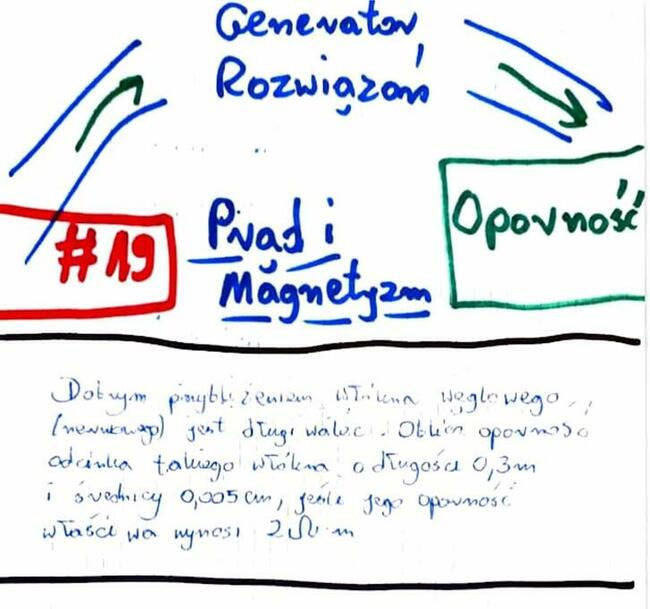 Generator
Rozwiązań
#19
Prąd i
Magnetyzm
Oporność
Dobrym przybliżeniem włókna węglowego
(nerwowego) jest długi walec. Oblicz oporność
odcinka takiego włókna o długości 0,3m
i średnicy 0,005cm, jeśli jego oporność
właściwa wynosi 2Ω·m